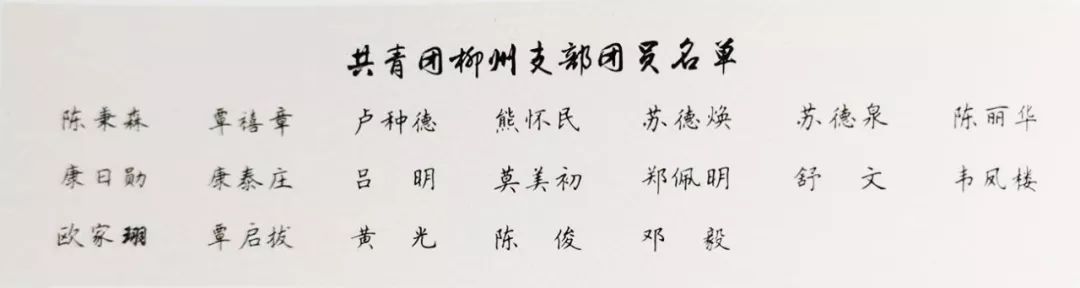 共青团柳州支部团员名单
陈秉森 覃禧章 卢种德 熊怀民 苏德焕 苏德泉 陈丽华
康日勋 康泰庄 吕明 莫美初 郑佩明 舒文 韦凤楼
欧家珝 覃启拔 黄光 陈俊 邓毅